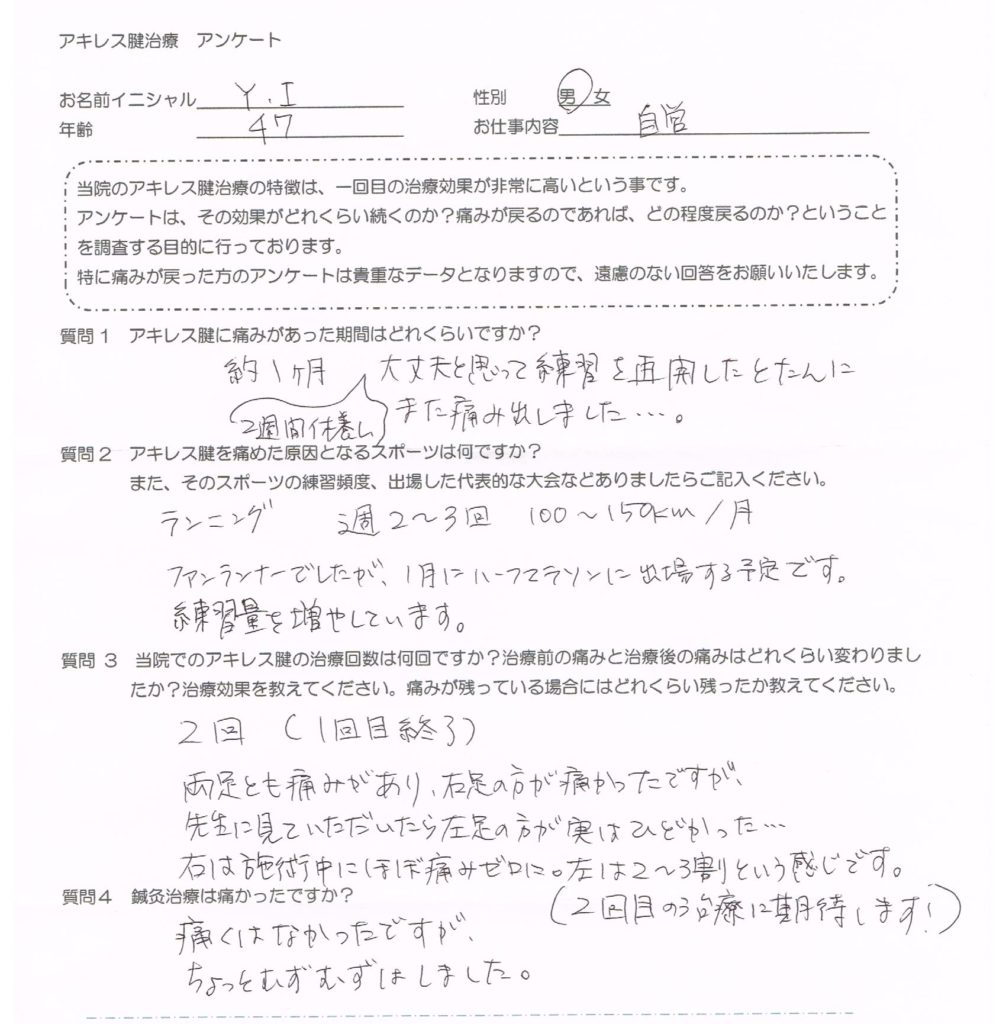 アキレス腱治療　アンケート
お名前イニシャル Y.I　性別　男 女
年齢 47　お仕事内容 自営
当院のアキレス腱治療の特徴は、一回目の治療効果が非常に高いという事です。
アンケートは、その効果がどれくらい続くのか？痛みが戻るのであれば、どの程度戻るのか？ということ
を調査する目的に行っております。
特に痛みが戻った方のアンケートは貴重なデータとなりますので、遠慮のない回答をお願いいたします。
質問1　アキレス腱に痛みがあった期間はどれくらいですか？
約1ヶ月　大丈夫と思って練習を再開したとたんに
2週間休養し
また痛み出しました…。
質問2　アキレス腱を痛めた原因となるスポーツは何ですか？
また、そのスポーツの練習頻度、出場した代表的な大会などありましたらご記入ください。
ランニング　週2～3回　100～150km/月
ファンランナーでしたが、1月にハーフマラソンに出場する予定です。
練習量を増やしています。
質問 3　当院でのアキレス腱の治療回数は何回ですか？治療前の痛みと治療後の痛みはどれくらい変わりまし
たか？治療効果を教えてください。痛みが残っている場合にはどれくらい残ったか教えてください。
2回　(1回目終了)
両足とも痛みがあり、右足の方が痛かったですが、
先生に見ていただいたら左足の方が実はひどかった…
右は施術中にほぼ痛みゼロに。左は2～3割という感じです。
(2回目の治療に期待します!)
質問4　鍼灸治療は痛かったですか？
痛くはなかったですが、
ちょっとむずむずはしました。